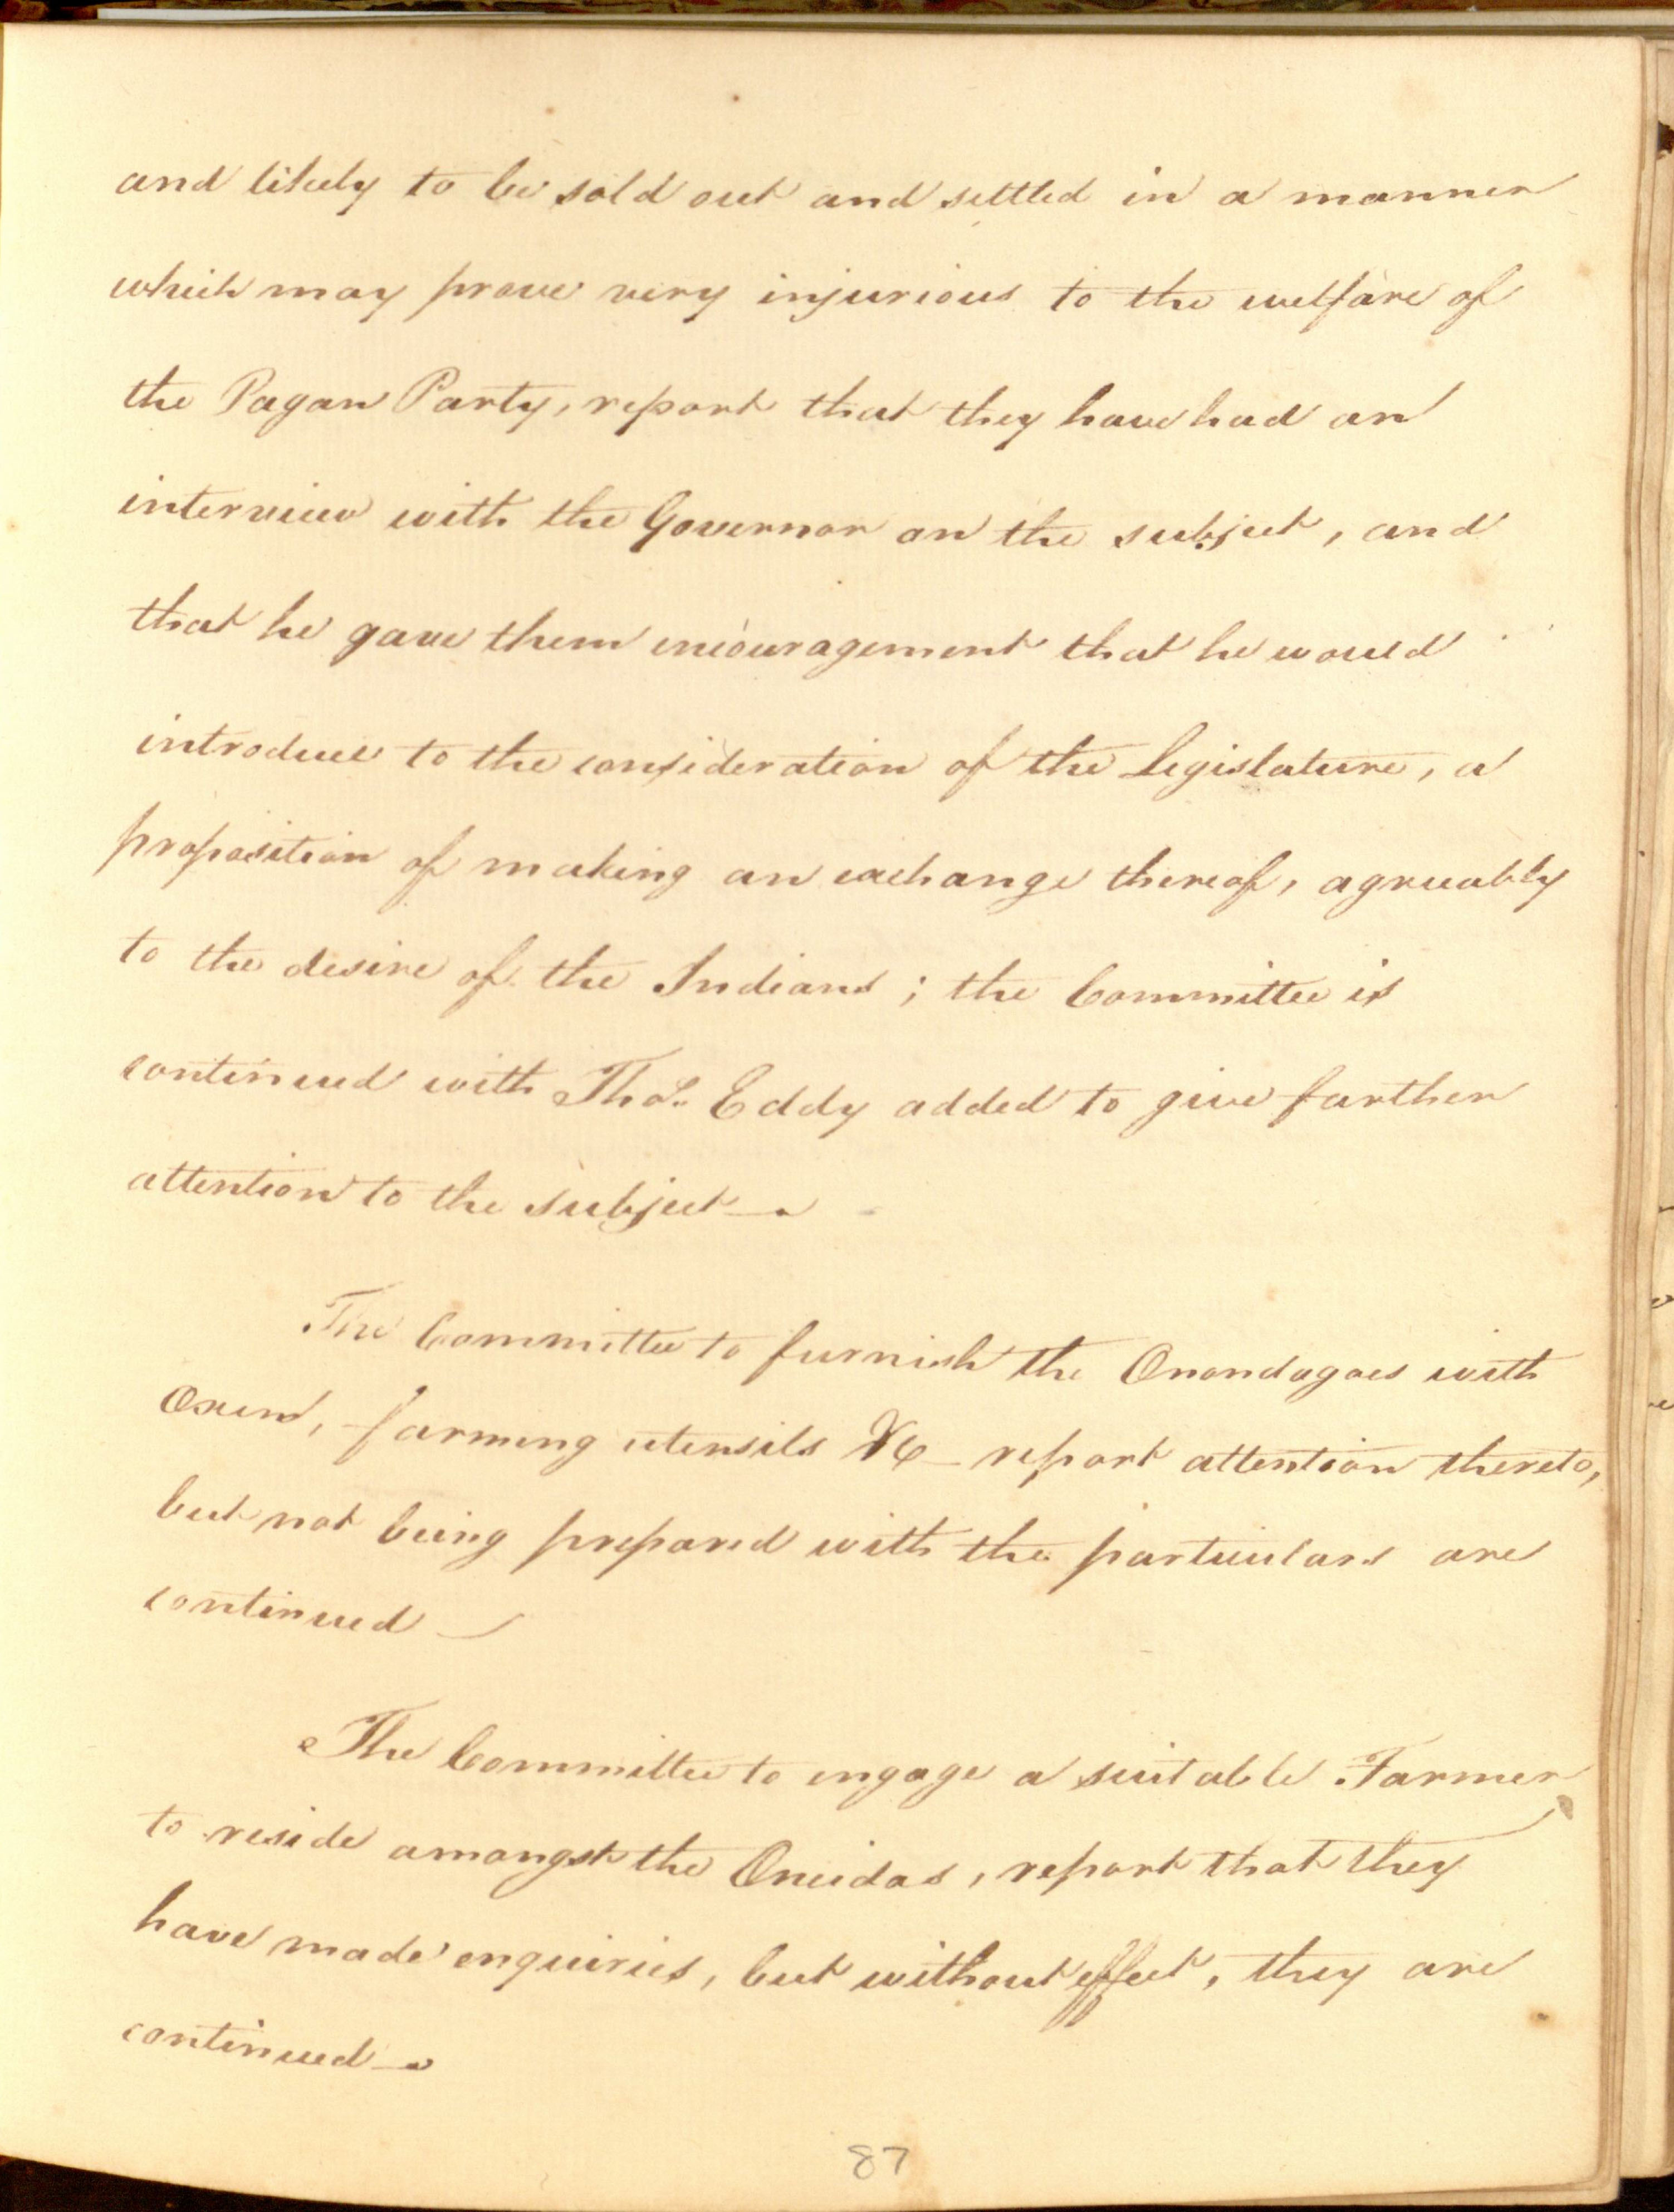 and likely to be sold out and settled in a manner
which may prove very injurious to the welfare of
the Pagan Party, report that they have had an
interview with the Governor on the subject, and
that he gave them encouragement that he would
introduce to the consideration of the Legislature, a
proposition of making an exchange thereof, agreeably
to the desire of the Indians; the Committee is
continued with Thos. Eddy added to give further
attention to the subject —
The Committee to furnish the Onondagoes with
Oxen, farming utensils &c — report attention thereto,
but not being prepared with the particulars are
continued —
The Committee to engage a suitable Farmer
to reside amongst the Oneidas, report that they
have made enquiries, but without effect, they are
continued —
87